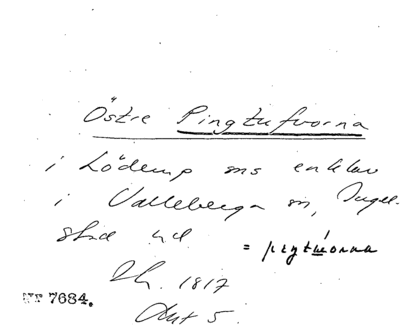 Östre Pingtufvorna
i Löderup sns enklav
i Valleberga sn, Ingel-
stad hd
= pıŋtɯvoṛna
Lh. 1817
Akt 5.
7684.